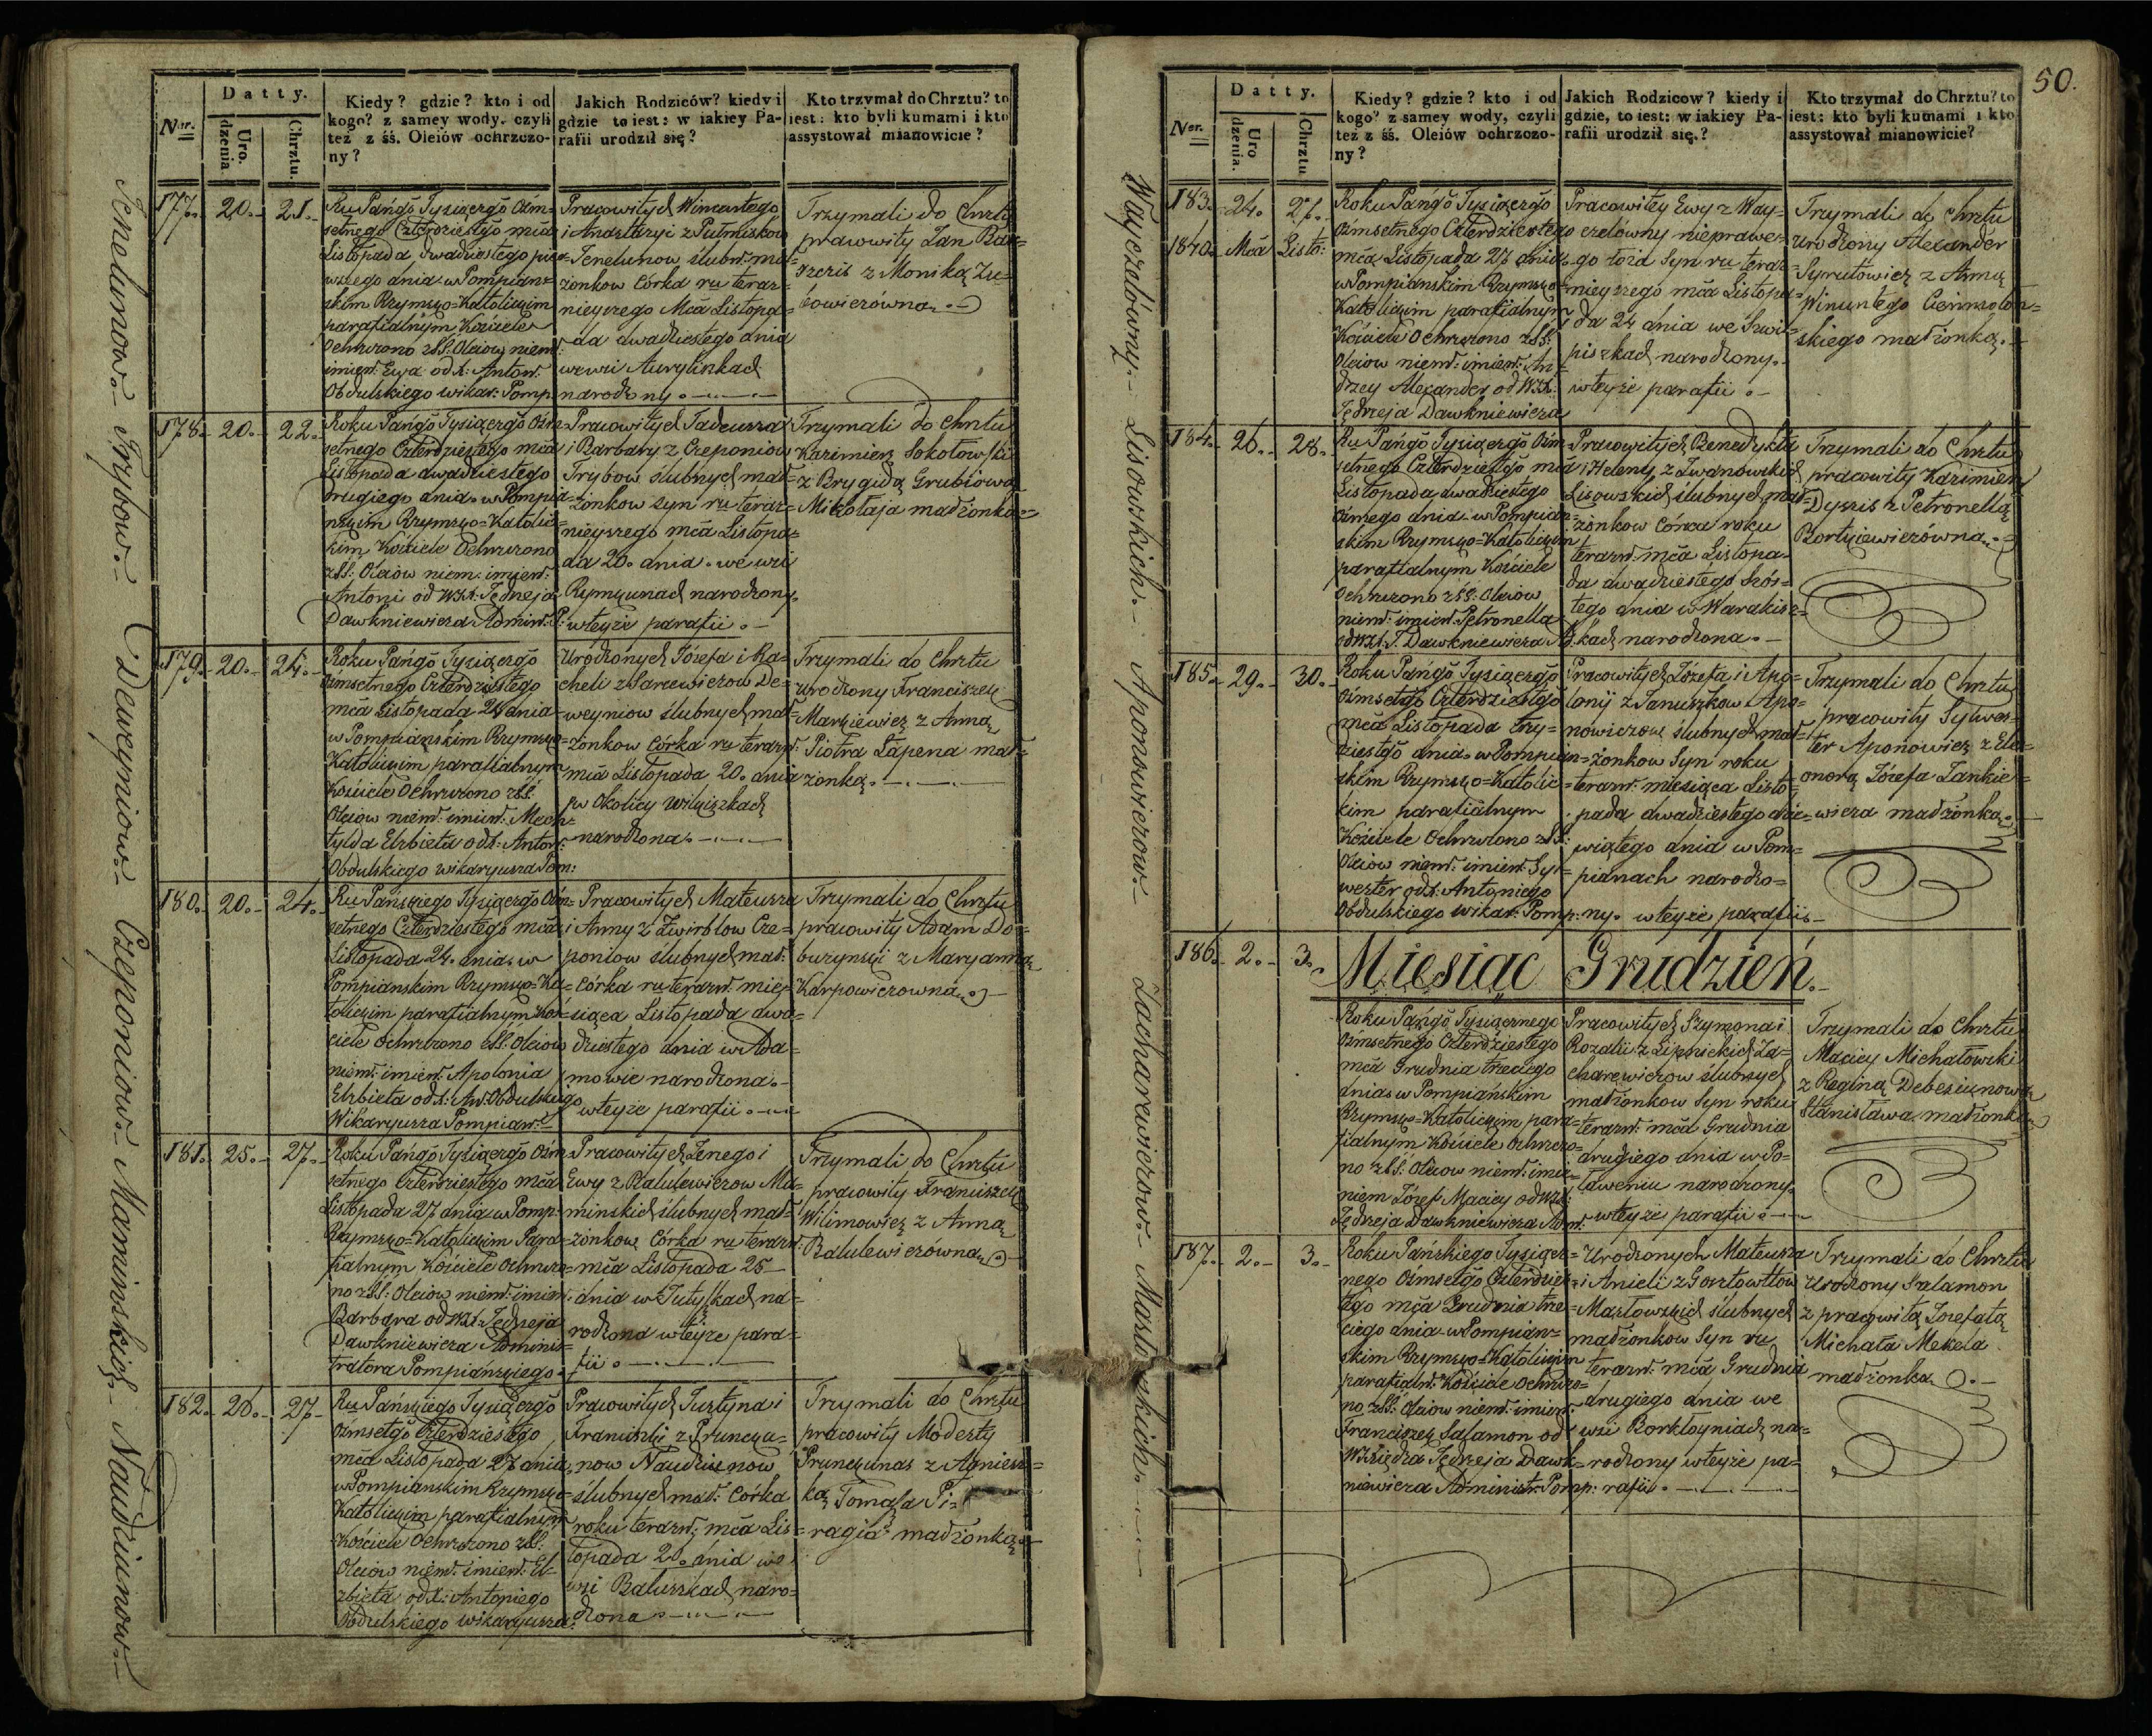 Jenelunow.- Trybow.- Deweyniow.- Czeponiow.- Maminskich.- Naudziunow.-
Datty.
Ner.
Uro.
dzenia
Chrztu.
Kiedy? gdzie? kto i od
kogo? z samey wody, czyli
też z śś. Oleiów ochrzczo-
ny?
Jakich Rodziców? kiedy i
gdzie to iest: w iakiey Pa-
rafii urodził się?
Kto trzymał do Chrztu? to
iest: kto byli kumami i kto
assystował mianowicie?
177. 20. 21.
Ru Pańgo Tysiącgo Ośm-
setnego Czterdziestgo mca
Listopada dwadziestego pier-
wszego dnia w Pompian-
skim Rzymsko-Katolickim
parafialnym Kościele
Ochrzczono z SS. Oleiow niem.
imien. Ewa od X. Anton.
Obdulskiego wikar. Pomp.
Pracowitych Wincentego
i Anastazyi z Putniskow
Jenelunow ślubn. mał-
żonkow Córka ru teraz-
nieyszego Mca Listopa-
da dwadziestego dnia
we wsi Aurylinkach
narodzony.
Trzymali do Chrztu
pracowity Jan
z Moniką
178. 20. 22.
Roku Pańgo Tysiącgo Ośm-
setnego Czterdziestego mca
Listopada dwadziestego
drugiego dnia w Pompia-
nskim Rzymsko-Katolic-
kim Kościele Ochrzczono
z SS. Oleiow niem. imien.
Antoni od WX. Jędrzeja
Dawkniewicza Admin. P.
Pracowitych Tadeusza
i Barbary z Czeponiow
Trybow ślubnych mał-
żonkow syn ru teraz-
nieyszego mca Listopa-
da 20. dnia we wsi
Rymkunach narodzony.
w teyże parafii.
Trzymali do Chrztu
Kazimierz Sokołowski
z Brygidą Grubiową
Mikołaja małżonką
179. 20. 24.
Roku Pańgo Tysiącgo
Ośmsetnego Czterdziestego
mca Listopada 24 dnia
w Pompianskim Rzymsko-
Katolickim parafialnym
Kościele Ochrzczono z SS.
Oleiow niem. imien. Mech-
tylda Elzbieta od X. Anton.
Obdulskiego wikaryusza Pom.
Urodzonych Józefa i Ra-
cheli z Sarcewiczow De-
weyniow ślubnych mał-
żonkow Córka ru terazn.
mca Listopada 20. dnia
w Okolicy Wiliszkach
narodzona.
Trzymali do Chrztu
urodzony Franciszek
Markiewicz z Anną
Piotra Łapena mał-
żonką.
180. 20. 24.
Ru Pańskiego Tysiącgo Ośm-
setnego Czterdziestego mca
Listopada 24. dnia w
Pompianskim Rzymsko-Ka-
tolickim parafialnym Koś-
ciele Ochrzczono z SS. Oleiow
niem. imien. Apolonia
Elzbieta od X. An. Obdulskiego
Wikaryusza Pompian.
Pracowitych Mateusza
i Anny z Zwirblow Cze-
poniow ślubnych mał.
Córka ru terazn. mie-
siąca Listopada dwa-
dziestego dnia w Ada-
mowie narodzona.
w teyże parafii.
Trzymali do Chrztu
pracowity Adam Do-
burynski z Maryanną
Karpowiczowną.
181. 25. 27.
Roku Pańgo Tysiącgo Ośm-
setnego Czterdziestego mca
Listopada 27 dnia w Pomp.
Rzymsko-Katolickim Para-
fialnym Kościele Ochrzczo-
no z SS. Oleiow niem. imien.
Barbara od WX. Jędrzeja
Dawkniewicza Adminis-
tratora Pompianskiego.
Pracowitych Zenego i
Ewy z Balulewiczow Ma-
minskich ślubnych mał-
żonkow Córka ru terazn.
mca Listopada 25
dnia w Jutyszkach na-
rodzona w teyże para-
fii.
Trzymali do Chrztu
pracowity Franciszek
Wilimowicz z Anną
Balulewiczówną.
182. 26. 27.
Ru Pańskiego Tysiącgo
Ośmsetgo Czterdziestego
mca Listopada 27 dnia
w Pompianskim Rzymsko-
Katolickim parafialnym
Kościele Ochrzczono z SS.
Oleiow niem. imien. El-
zbieta od X. Antoniego
Obdulskiego wikaryusza.
Pracowitych Justyna i
Franciszki z Pruncku-
now Naudziunow
ślubnych mał. Corka
roku terazn. mca Lis-
topada 26. dnia we
wsi Baluszkach naro-
dzona.
Trzymali do Chrztu
pracowity Modesty
Prunckunas z Agniesz-
ką Tomasza Pi-
ragia małżonką.
50.
Wayczelówny.- Lisowskich.- Aponowiczow.- Zacharewiczow.- Masłowskich.-
Datty.
Ner.
Uro
dzenia.
Chrztu
Kiedy? gdzie? kto i od
kogo? z samey wody, czyli
też z śś. Oleiów ochrzczo-
ny?
Jakich Rodzicow? kiedy i
gdzie, to iest: w iakiey Pa-
rafii urodził się.?
Kto trzymał do Chrztu? to
iest: kto byli kumami i kto
assystował mianowicie?
183. 24. 27.
1840. Mca Listo:
Roku Pańgo Tysiącgo
Ośmsetnego Czterdziestego
mca Listopada 27 dnia
w Pompianskim Rzymsko-
Katolickim parafialnym
Kościele Ochrzczono z SS.
Oleiow niem. imien. An-
drzey Alexander od WX.
Jędrzeja Dawkniewicza
Pracowitey Ewy z Way-
czelówny nieprawe-
go łoża Syn ru teraz-
nieyszego mca Listopa-
da 24 dnia we Szwi-
piszkach narodzony.
w teyże parafii.
Trzymali do Chrztu
urodzony Alexander
Syrutowicz z Anną
Wincentego
skiego małżonką.
184. 26. 28.
Ru Pańgo Tysiącgo Ośm-
setnego Czterdziestgo mca
Listopada dwadziestego
ósmego dnia w Pompian-
skim Rzymsko-Katolickim
parafialnym Kościele
Ochrzczono z SS. Oleiow
niem. imien. Petronella
od WX. J. Dawkniewicza A.
Pracowitych Benedykta
i Heleny z Iwanowskich
Lisowskich ślubnych mał-
żonkow Córka roku
terazn. mca Listopa-
da dwadziestego szós-
tego dnia w Warakisz-
kach narodzona.
Trzymali do Chrztu
pracowity Kazimierz
Dyrzis z Petronellą
Bortkiewiczówną.
185. 29. 30.
Roku Pańgo Tysiącgo
Ośmsetgo Czterdziestgo
mca Listopada trzy-
dziestgo dnia w Pompian-
skim Rzymsko-Katolic-
kim parafialnym
Kościele Ochrzczono z SS.
Oleiow niem. imien. Syl-
wester od X. Antoniego
Obdulskiego wikar. Pomp.
Pracowitych Józefa i Apo-
lonij z Januszkow Apo-
nowiczow ślubnych mał-
żonkow Syn roku
terazn. miesiąca Listo-
pada dwadziestego dzie-
wiątego dnia w Pom-
pianach narodzo-
ny. w teyże parafii.
Trzymali do Chrztu
pracowity Sylwes-
ter Aponowicz z Ele-
onorą Józefa Jankie-
wicza małżonką.
186. 2. 3.
Miesiąc Grudzień.
Roku Pańgo Tysiącznego
Ośmsetnego Czterdziestego
mca Grudnia trzeciego
dnia w Pompiańskim
Rzymsko-Katolickim para-
fialnym Kościele Ochrzczo-
no z SS. Oleiow niem. imie-
niem Józef Maciey od WX.
Jędrzeja Dawkniewicza Adm.
Pracowitych Szymona i
Rozalii z Lipnickich Za-
charewiczow ślubnych
małżonkow Syn roku
terazn. mca Grudnia
drugiego dnia w Po-
ławeniu narodzony.
w teyże parafii.
Trzymali do Chrztu
Maciey Michałowski
z Reginą Debesiunową
Stanisława małżonką
187. 2. 3.
Roku Pańskiego Tysiącz-
nego Ośmsetgo Czterdzies-
tego mca Grudnia trze-
ciego dnia w Pompian-
skim Rzymsko-Katolickim
parafialn. Kościele Ochrzczo-
no z SS. Oleiow niem. imien.
Franciszek Salamon od
WXiędza Jędrzeja Dawk-
niewicza Administr. Pomp.
Urodzonych Mateusza
i Anieli z Gosztowttow
Masłowskich ślubnych
małżonkow Syn ru
terazn. mca Grudnia
drugiego dnia we
wsi Borkłoyniach na-
rodzony w teyże pa-
rafii.
Trzymali do Chrztu
Urodzony Salamon
z pracowitą Jozefatą
Michała Mekela
małżonką.